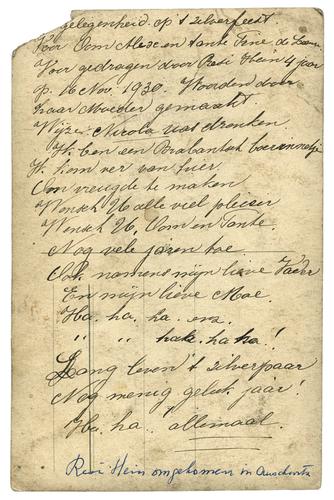 gelegenheid op 't zilverfeest.
Voor Oom Alex en tante Fine de
Voor gedragen door Resi Hein 4 jaar
op 16 Nov. 1930. Woorden door
haar Moeder gemaakt
Wijze: Nicola was dronken
Ik ben een Brabantsch boerinnetje
Ik kom ver van hier.
Om vreugde te maken
Wensch U alle veel plezier
Wensch U, Oom en Tante.
Nog vele jaren toe
Ook namens mijn lieve Vader
En mijn lieve Moe.
Ha, ha, ha. enz.
" " haha, ha ha!
Lang leven 't zilverpaar
Nog menig geluk jaar!
Ha, ha allemaal.
Resi Hein omgekomen in Auschwitz